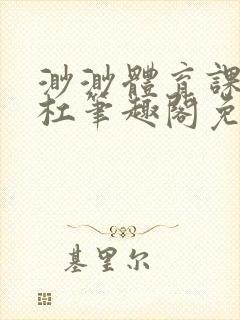 渺渺體育課
杜筆趣閣免
基里尔